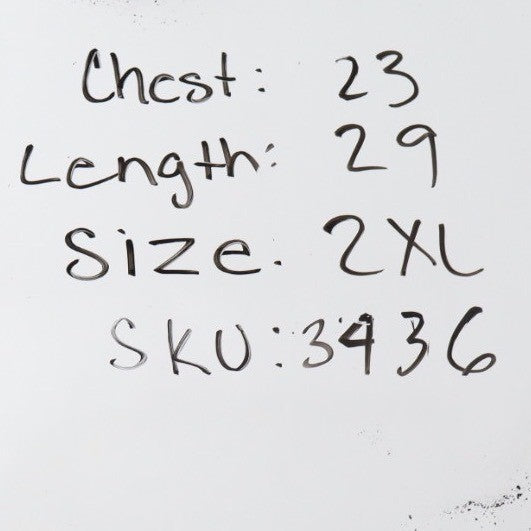 Chest: 23
Length: 29
Size: 2XL
SKU: 3436